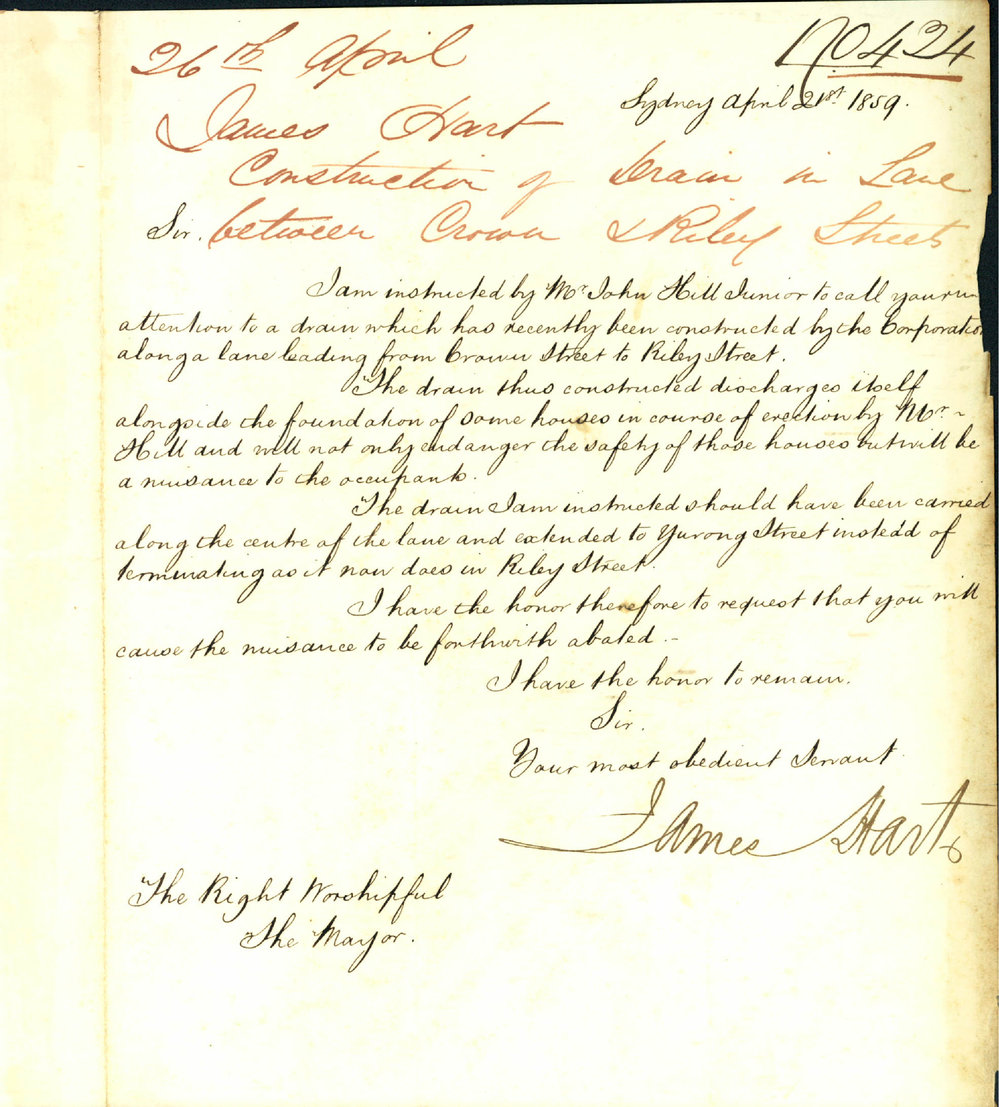 26th April
No 424
Sydney April 21st 1859.
James Hart
Construction of Drain in Lane
Sir. between Crown & Riley Streets
I am instructed by Mr John Hill Junior to call your
attention to a drain which has recently been constructed by the Corporation
along a lane leading from Crown Street to Riley Street.
The drain thus constructed discharges itself
alongside the foundation of some houses in course of erection by Mr -
Hill and will not only endanger the safety of those houses but will be
a nuisance to the occupants.
The drain I am instructed should have been carried
along the centre of the lane and extended to Yurong Street instead of
terminating as it now does in Riley Street.
I have the honor therefore to request that you will
cause the nuisance to be forthwith abated.-
I have the honor to remain.
Sir.
Your most obedient Servant
James Hart
The Right Worshipful
The Mayor.